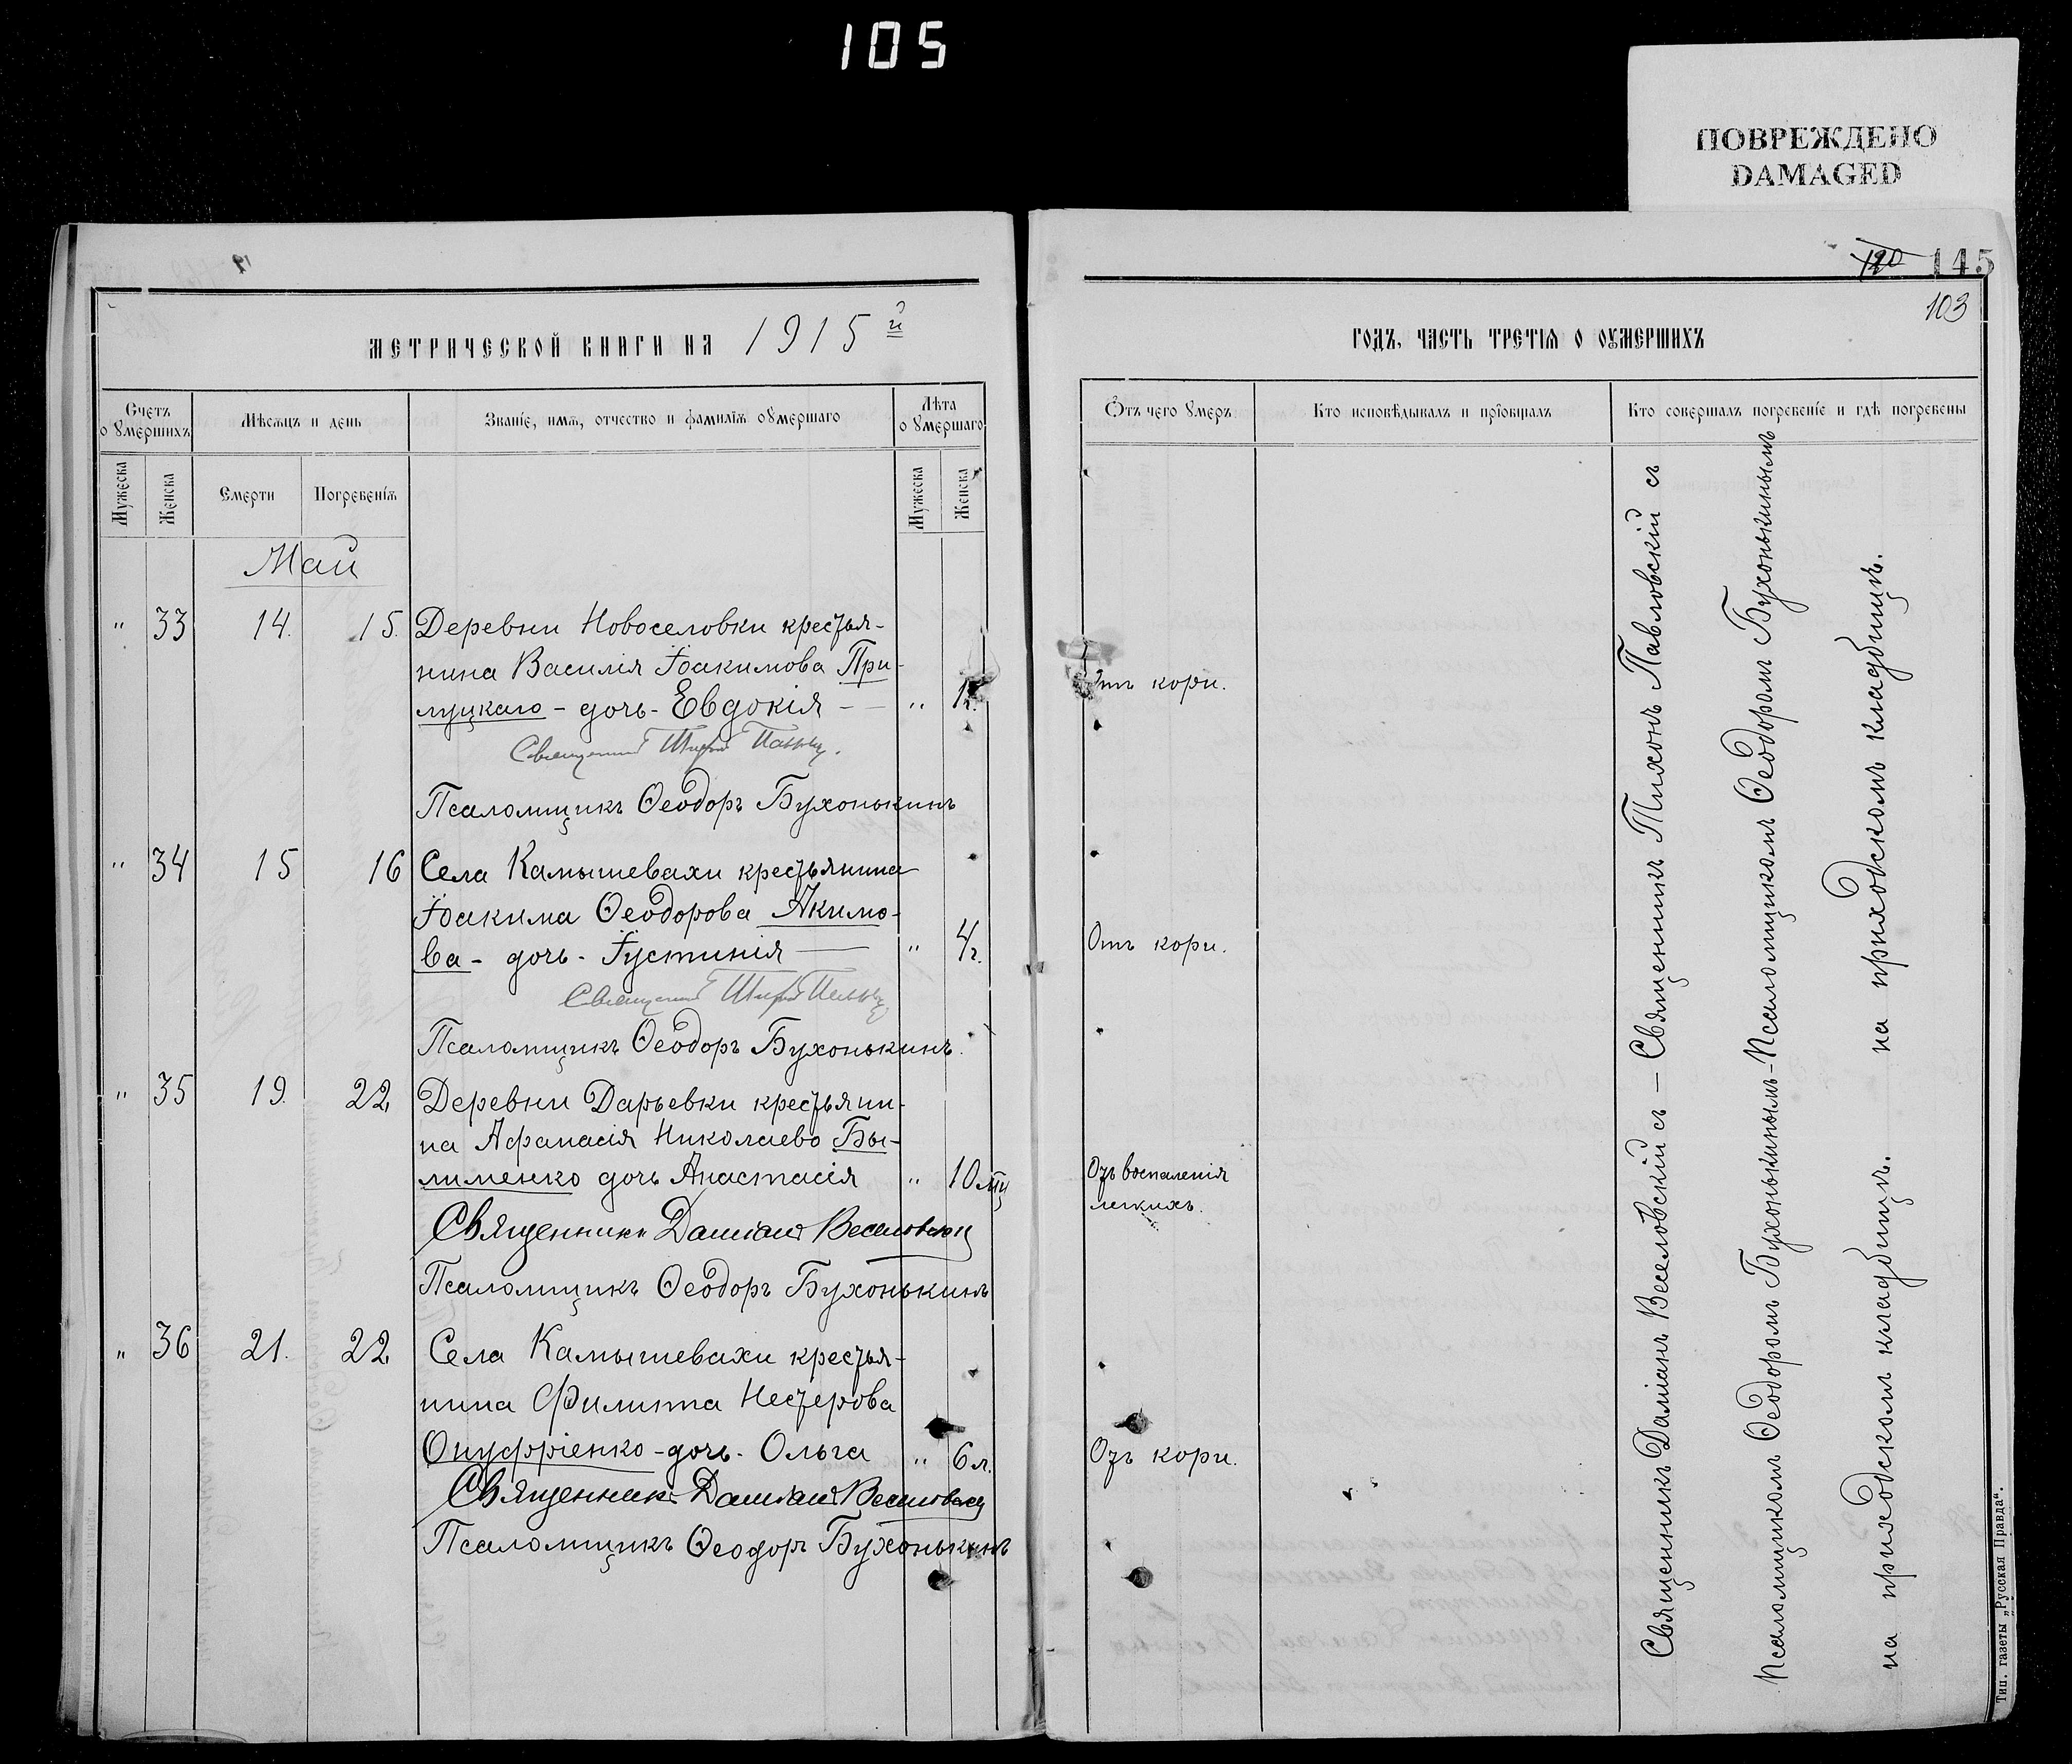 105
ПОВРЕЖДЕНО
DAMAGED
120 145
103
МЕТРИЧЕСКОЙ КНИГИ НА 1915й
ГОДЪ, ЧАСТЬ ТРЕТІЯ О ОУМЕРШИХЪ
Счетъ о умершихъ
Мѣсяцъ и день
Званіе, имя, отчество и фамилія оумершаго
Лѣта оумершаго
Отъ чего умеръ
Кто исповѣдывалъ и пріобщалъ
Кто совершалъ погребеніе и гдѣ погребены
Мужеска Женска Смерти Погребенія Мужеска Женска
Май
" 33 14. 15. Деревни Новоселовки крестья-
нина Василія Іоакимова При-
луцкаго - дочь - Евдокія — " 1г. Отъ кори.
Священникъ Тихонъ
Псаломщикъ Ѳеодоръ Бухонькинъ
" 34 15 16 Села Камышевахи крестьянина
Іоакима Ѳеодорова Акимо-
ва - дочь - Іустинія — " 4г. Отъ кори.
Священникъ Тихонъ
Псаломщикъ Ѳеодоръ Бухонькинъ.
" 35 19. 22. Деревни Дарьевки крестьяни-
на Афанасія Николаево Бы-
лименко дочь Анастасія " 10 мц Отъ воспаленія
легкихъ.
Священникъ Даміанъ Веселовскій
Псаломщикъ Ѳеодоръ Бухонькинъ
" 36 21. 22. Села Камышевахи крестья-
нина Филиппа Нестерова
Онуфріенко - дочь - Ольга " 6 л. Отъ кори.
Священникъ Даміанъ Веселовскій
Псаломщикъ Ѳеодоръ Бухонькинъ
Священникъ Тихонъ Павловскій съ
Псаломщикомъ Ѳеодоромъ Бухонькинымъ
на приходскомъ кладбищѣ.
Священникъ Даміанъ Веселовскій съ —
Псаломщикомъ Ѳеодоромъ Бухонькинымъ -
на приходскомъ кладбищѣ.
Тип. газеты „Русская Правда“.